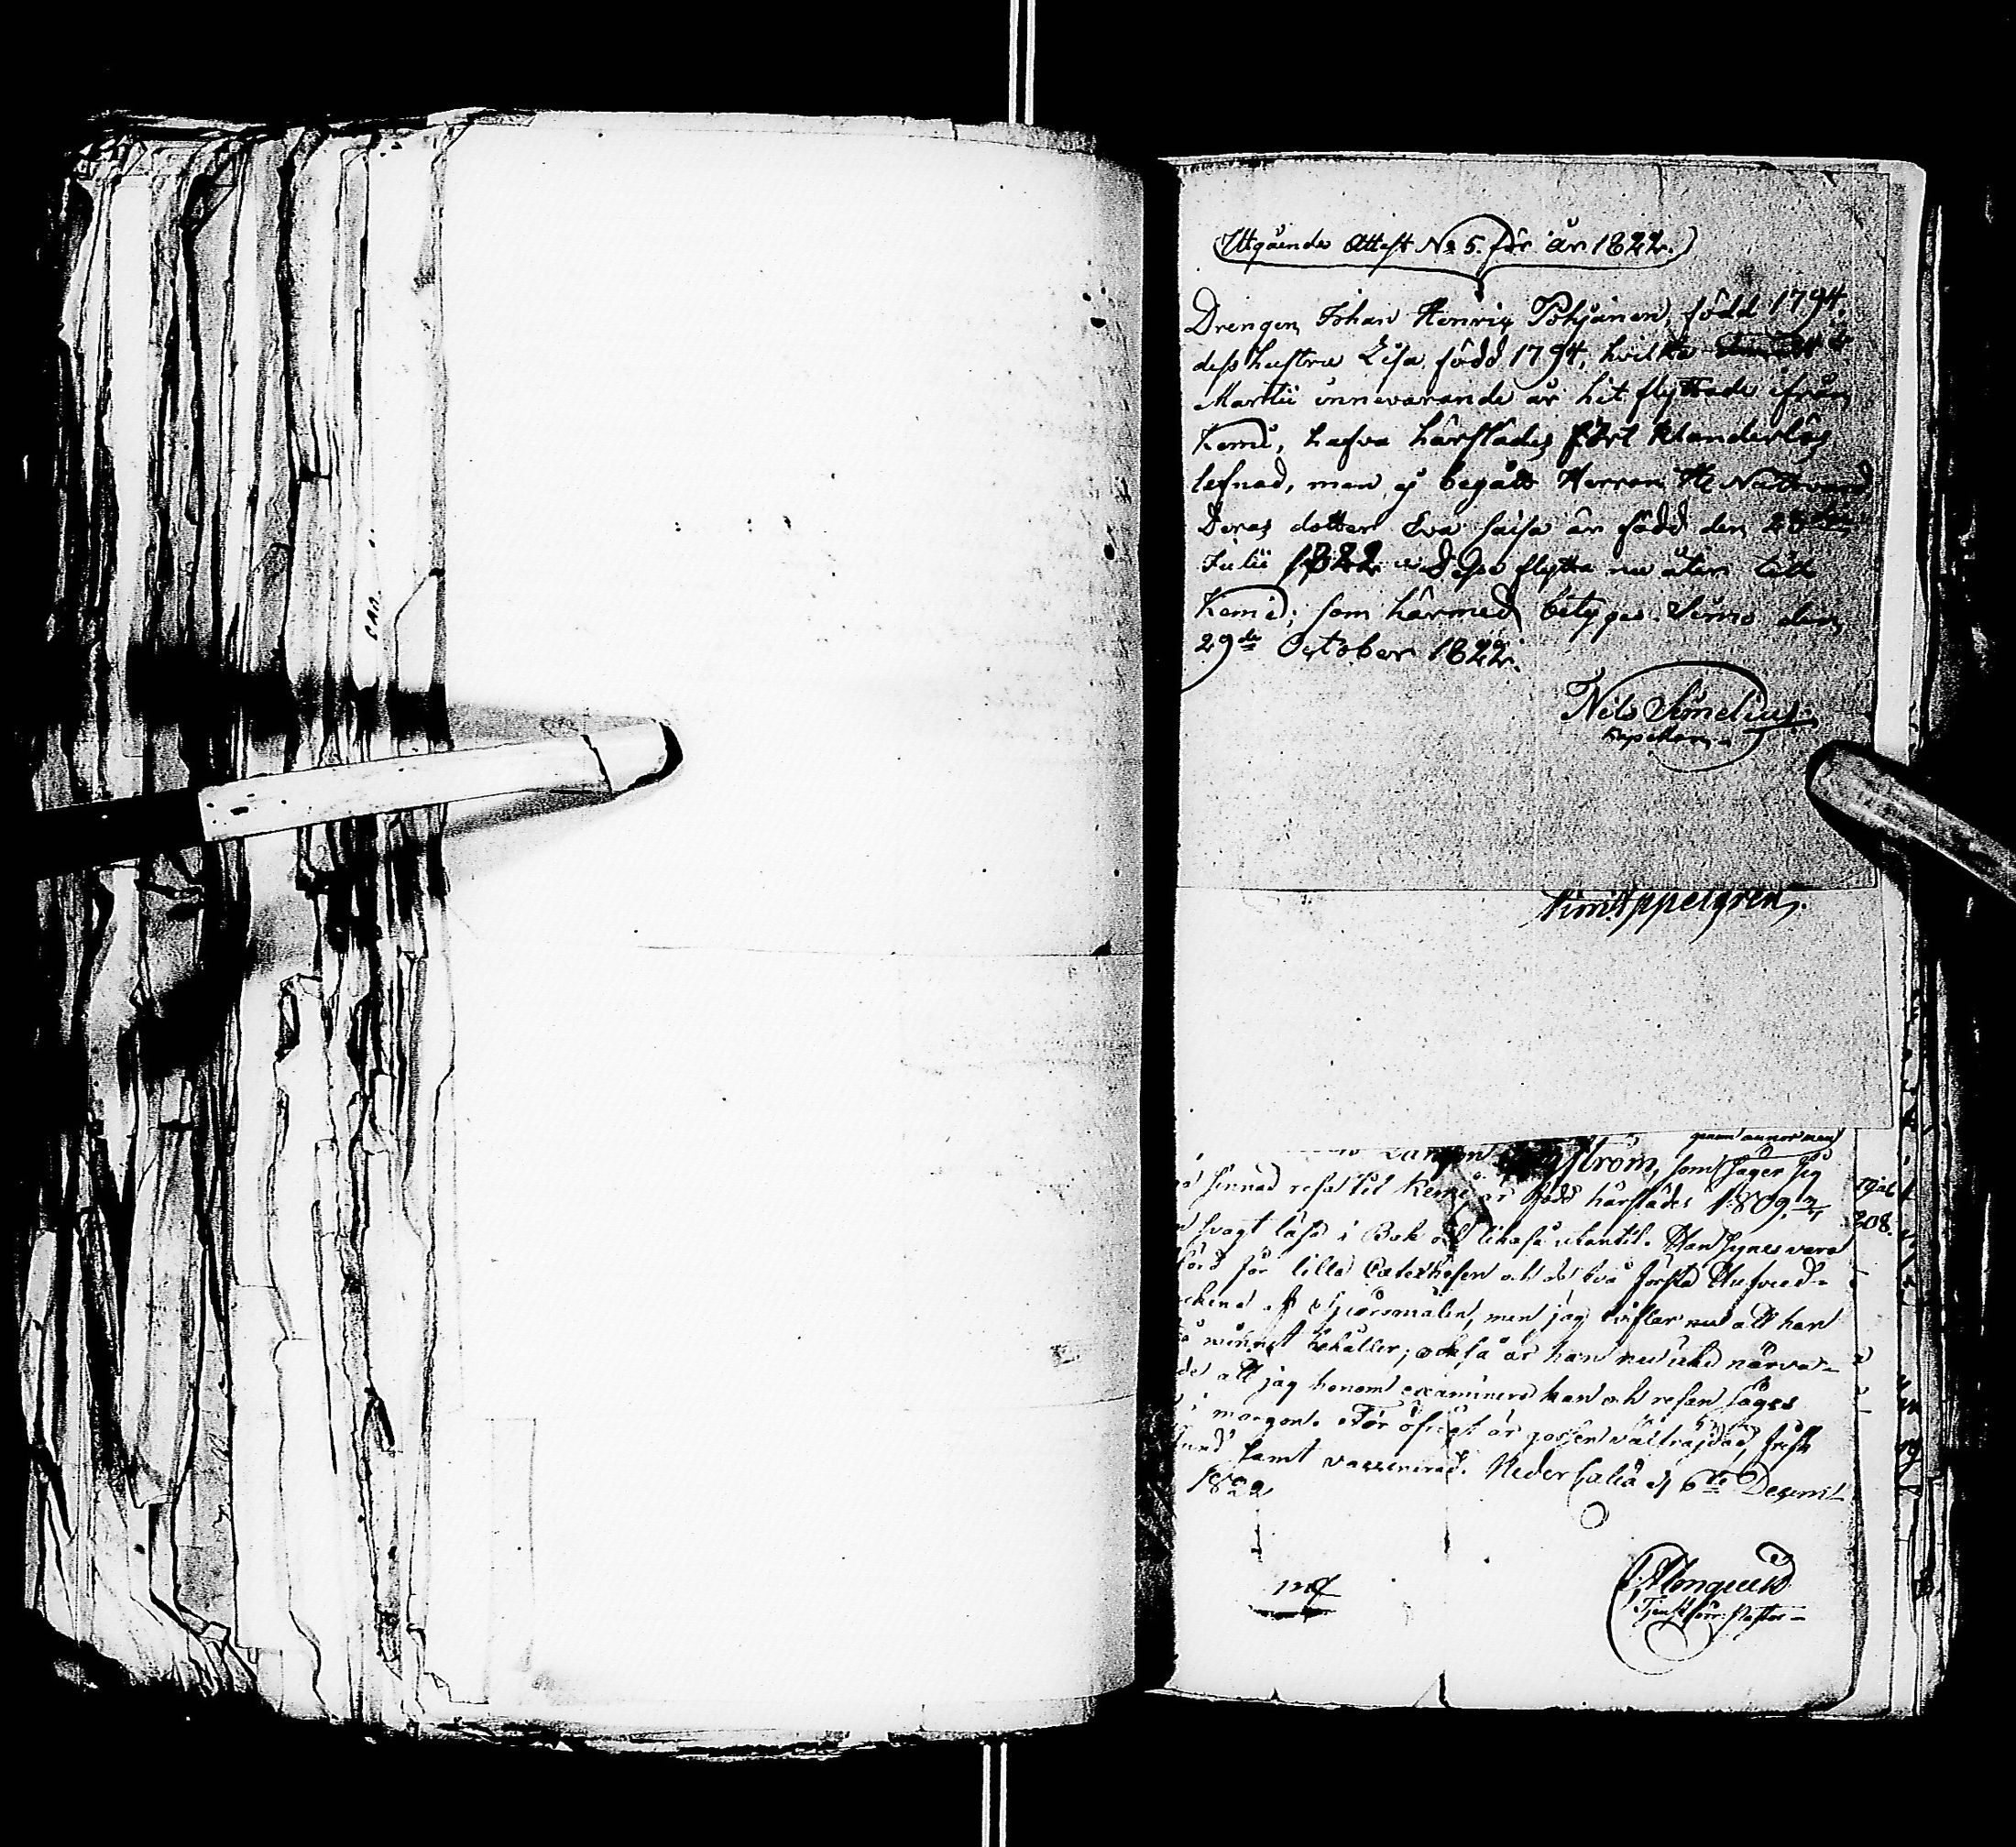 Utgående Attest No 5. för år 1822.
Drengen Johan Henric Pohjanen, född 1794.
dess hustru Lisa, född 1794, hvilka
Martii innevarande år hit flyttade ifrån
Kemi, hafva härstädes fört klanderlös
lefnad, men ej begått Herrans H. Nattvard
Deras dotter Eva Caisa är född den 28de
Julii 1822. Desse flytta nu åter till
Kemi; som härmed betygas. Simo den
29de October 1822.
Nils Simelius.
Kapellan.
Appelgren.
genom annor man
ström, som säger sig
sinnad resa til Kemi är född härstädes 1809
svagt läsa i Bok och likaså utantil. Han synes vara
för lilla Catechesen och de två första Hufvud-
Spörsmålen, men jag tviflar nu att han
minnet behåller; också är han nu icke närva-
de att jag honom examinera kan och resan säges
i morgon. För öfrigt är gossen väl frajdad, frisk
samt vaccinerad. Neder Calix d. 6te Decemb
1822
Tjenstförr. Pastor
208.